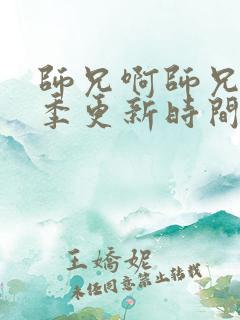 師兄啊師兄
季更新時間
王嬌妮
未経同意禁止转载